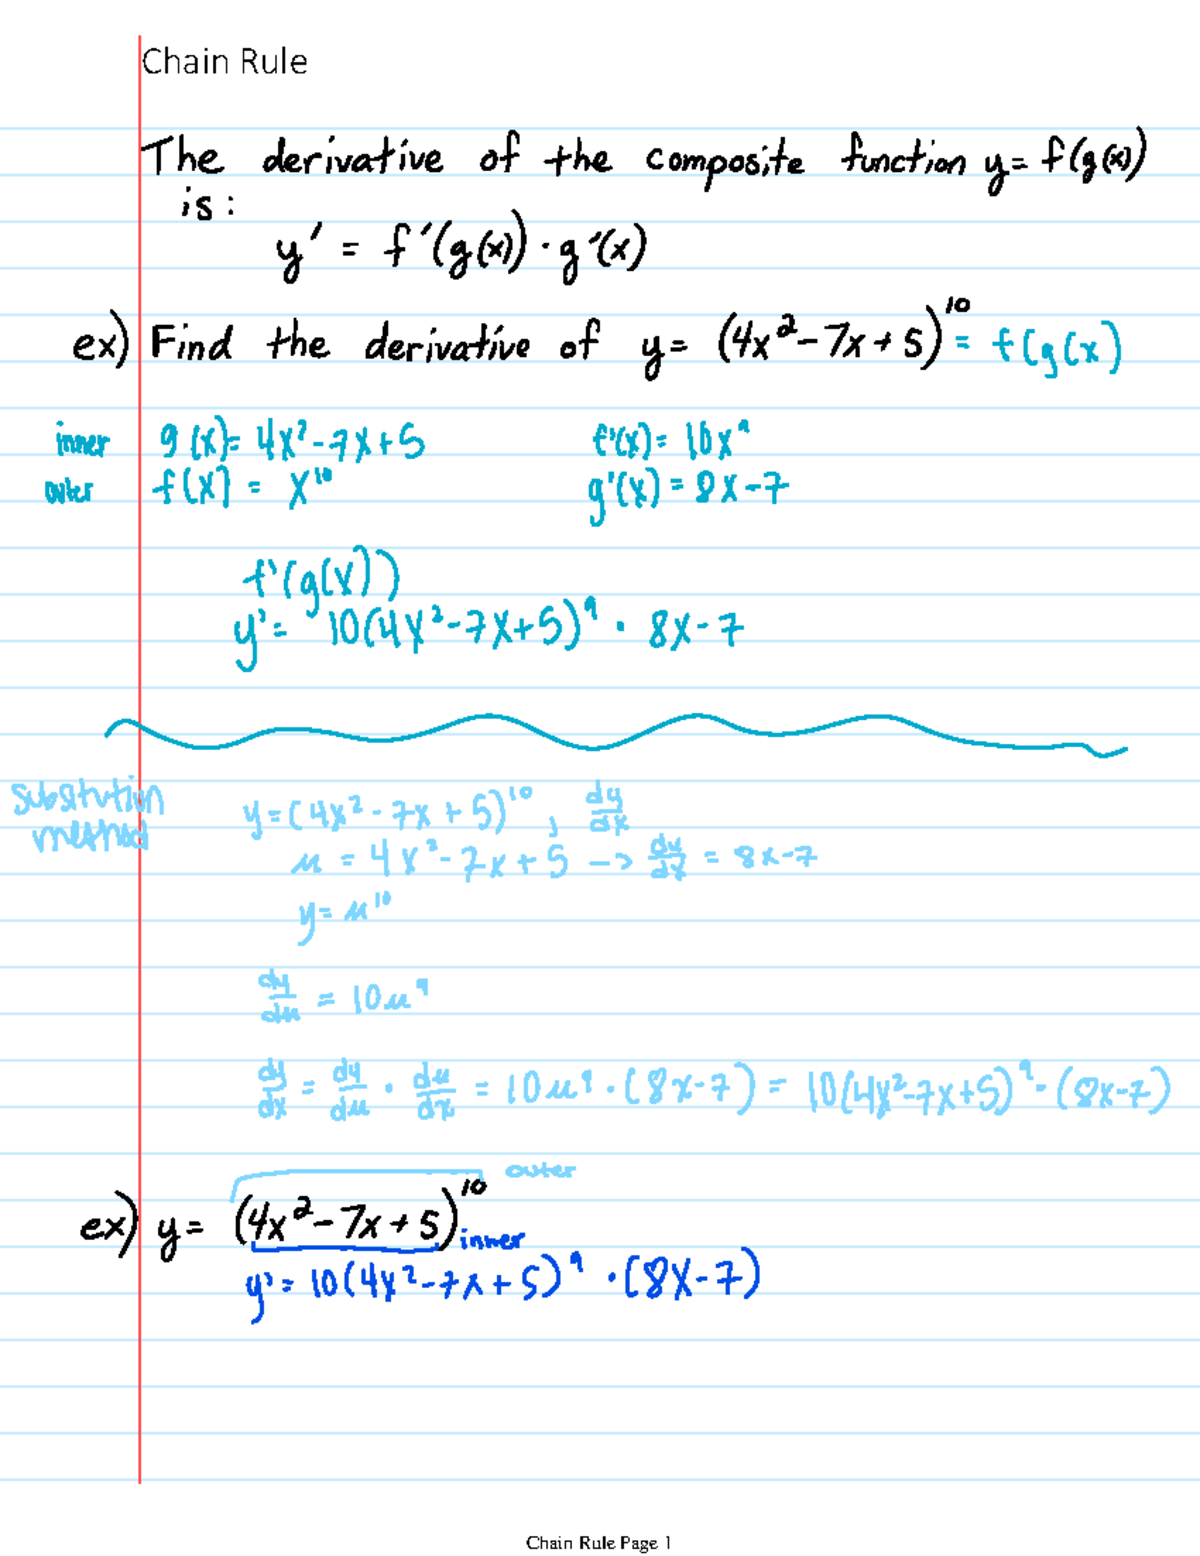 Chain Rule
The derivative of the composite function y = f(g(x))
is:
y' = f'(g(x)) · g'(x)
ex) Find the derivative of y = (4x²-7x+5)¹⁰ = f(g(x)
inner g(x)= 4x²-7x+5 f'(x)= 10x⁹
outer f(x) = x¹⁰ g'(x) = 8x-7
f'(g(x))
y'= 10(4x²-7x+5)⁹ · 8x-7
substitution
method
y=(4x²-7x+5)¹⁰, dy/dx
u = 4x²-7x+5 → du/dx = 8x-7
y= u¹⁰
dy/du = 10u⁹
dy/dx = dy/du · du/dx = 10u⁹ · (8x-7) = 10(4x²-7x+5)⁹ · (8x-7)
outer
ex) y= (4x²-7x+5)¹⁰ inner
y'= 10(4x²-7x+5)⁹ · (8x-7)
Chain Rule Page 1